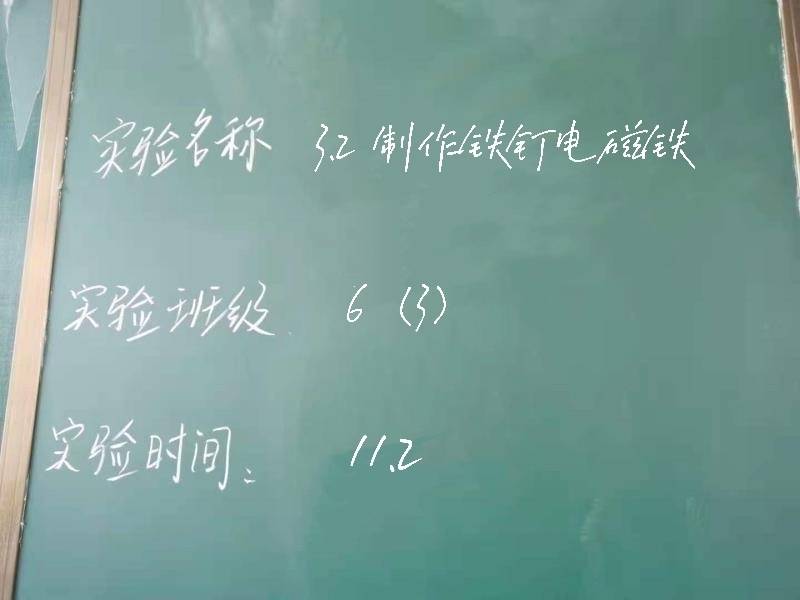 实验名称 3.2 制作铁钉电磁铁
实验班级 6 (3)
实验时间: 11.2